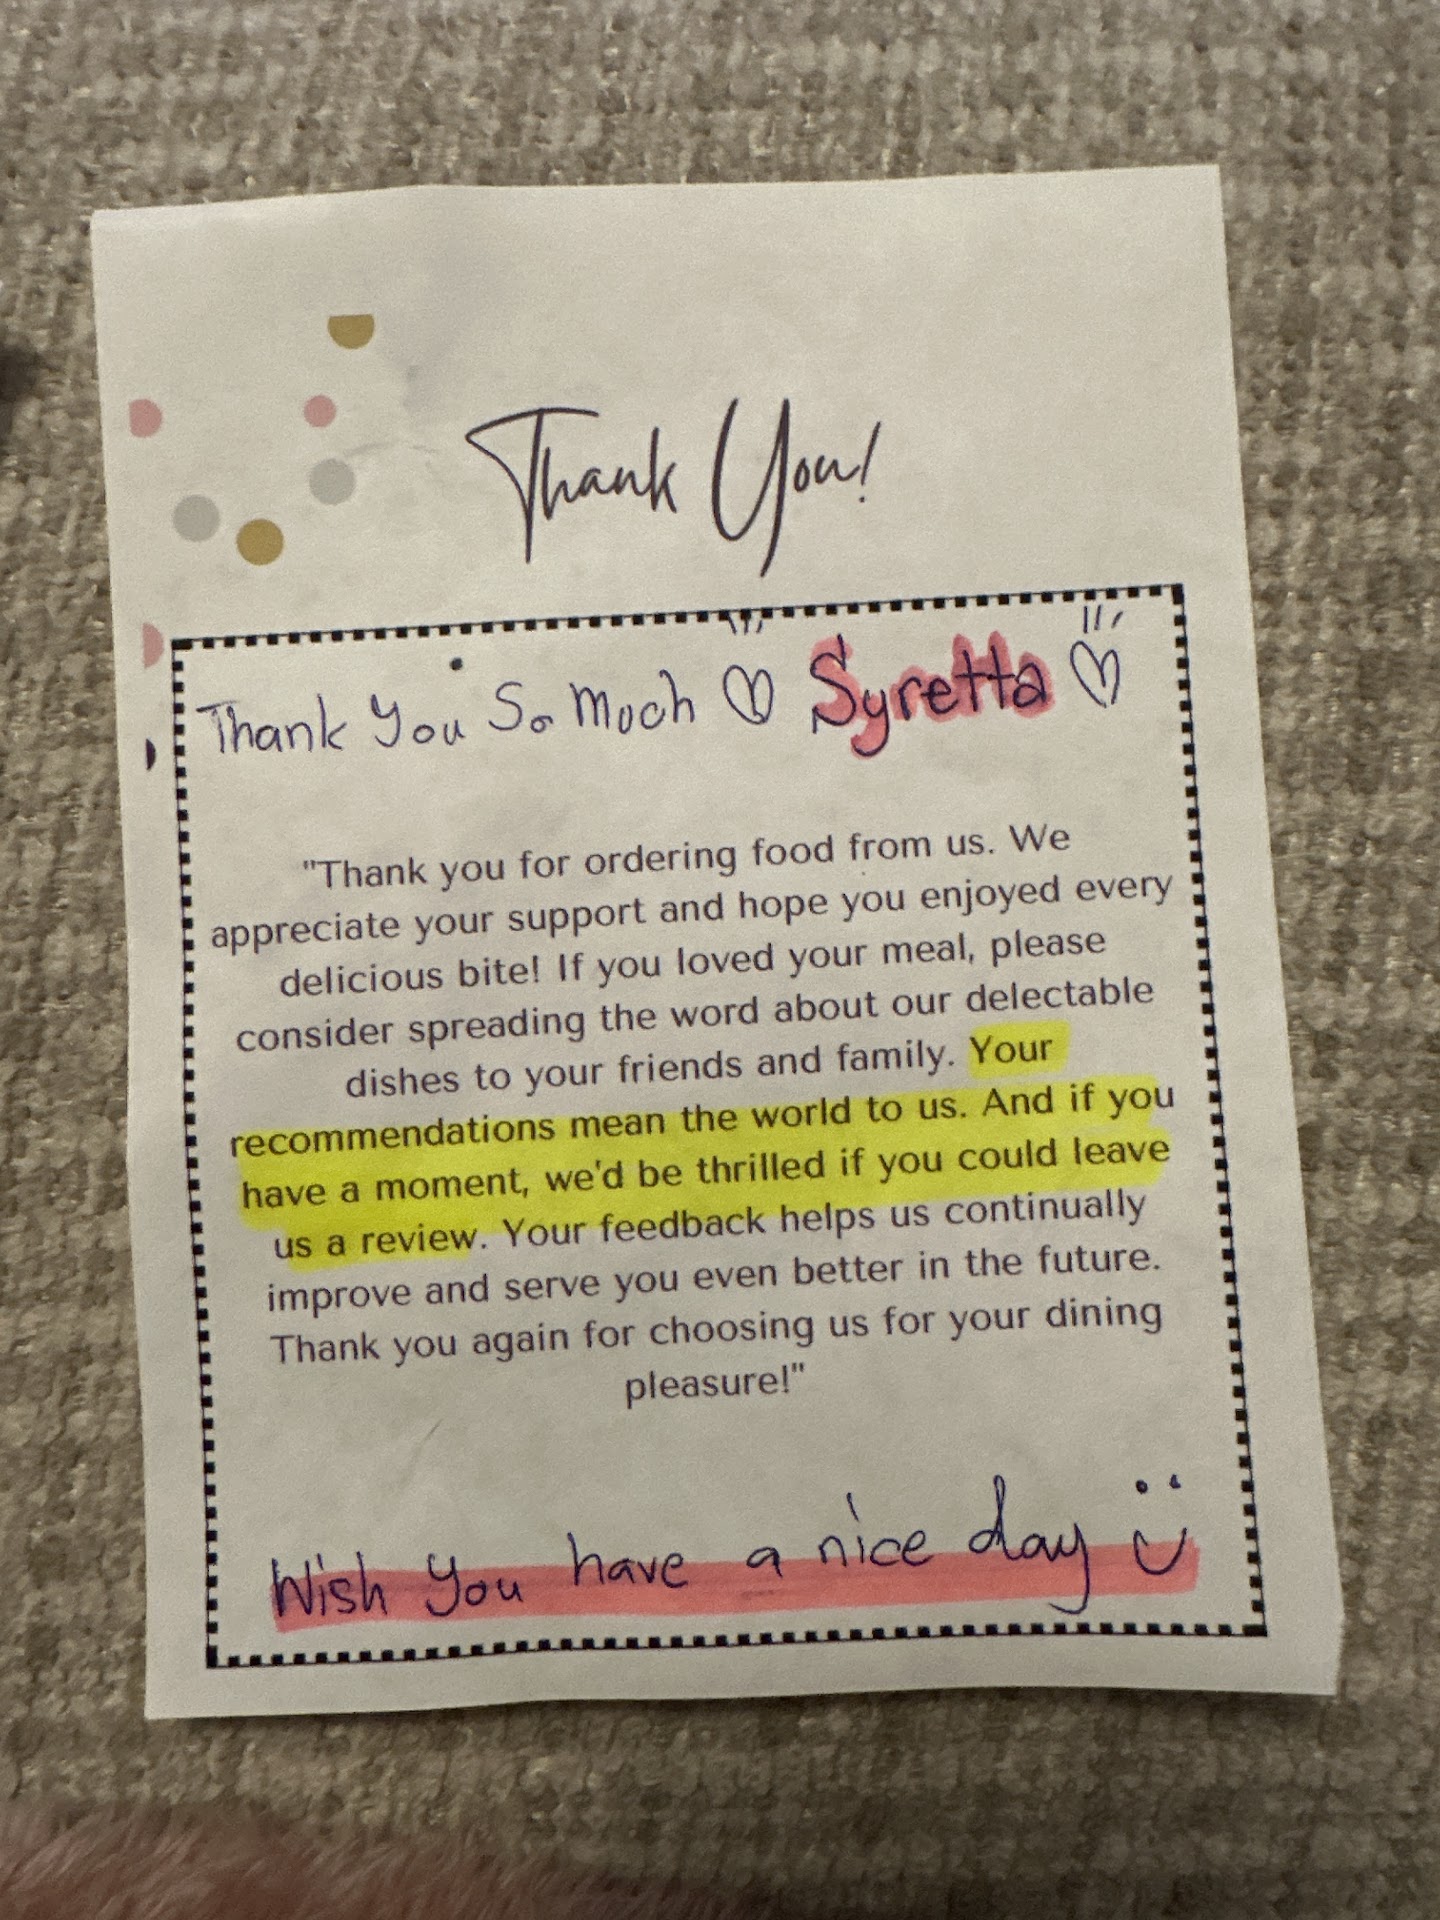 Thank You!
Thank You So Much ♡ Syretta ♡
"Thank you for ordering food from us. We
appreciate your support and hope you enjoyed every
delicious bite! If you loved your meal, please
consider spreading the word about our delectable
dishes to your friends and family. Your
recommendations mean the world to us. And if you
have a moment, we'd be thrilled if you could leave
us a review. Your feedback helps us continually
improve and serve you even better in the future.
Thank you again for choosing us for your dining
pleasure!"
Wish You have a nice day